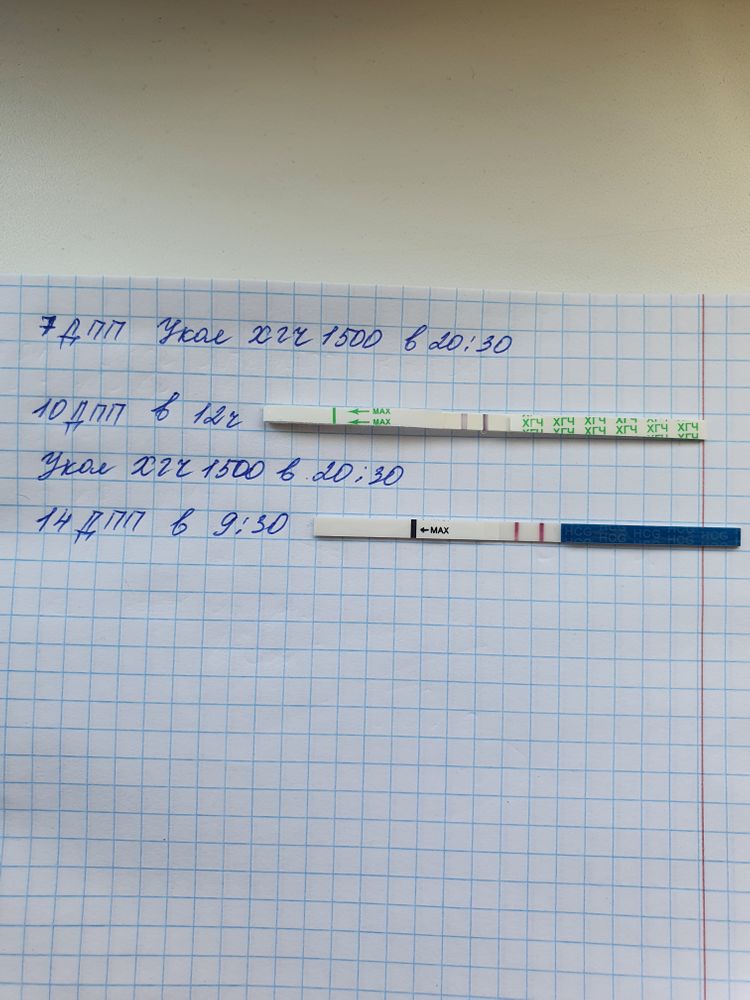 7 ДПП Укол ХГЧ 1500 в 20:30
10 ДПП в 12ч
MAX
MAX
ХГЧ ХГЧ ХГЧ ХГЧ ХГЧ ХГЧ
ХГЧ ХГЧ ХГЧ ХГЧ ХГЧ ХГЧ
Укол ХГЧ 1500 в 20:30
14 ДПП в 9:30
MAX
HCG HCG HCG HCG HCG
HCG HCG HCG